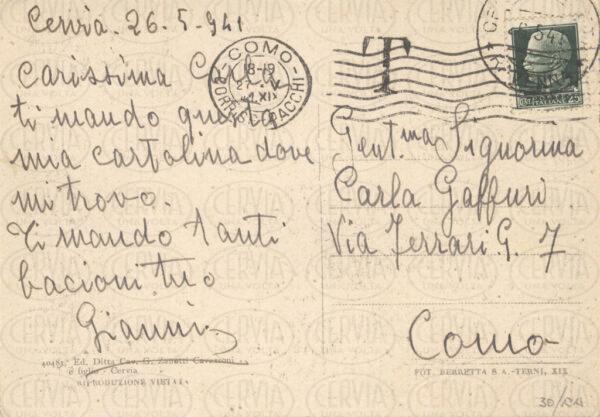 Cervia. 26. 5. 941
Carissima Carla
ti mando questa
mia cartolina dove
mi trovo.
Ti mando tanti
bacioni tuo
Gianni
40481. Ed. Ditta Cav. G. Zanotti Cavazzoni
e figlio - Cervia
RIPRODUZIONE VIETATA
COMO
18-19
27 V
41 XIX
CORR. PACCHI
T
Gent.ma Signorina
Carla Gaffuri
Via Ferrari G. 7
Como
FOT. BERRETTA S.A. - TERNI, XIX
30/CA